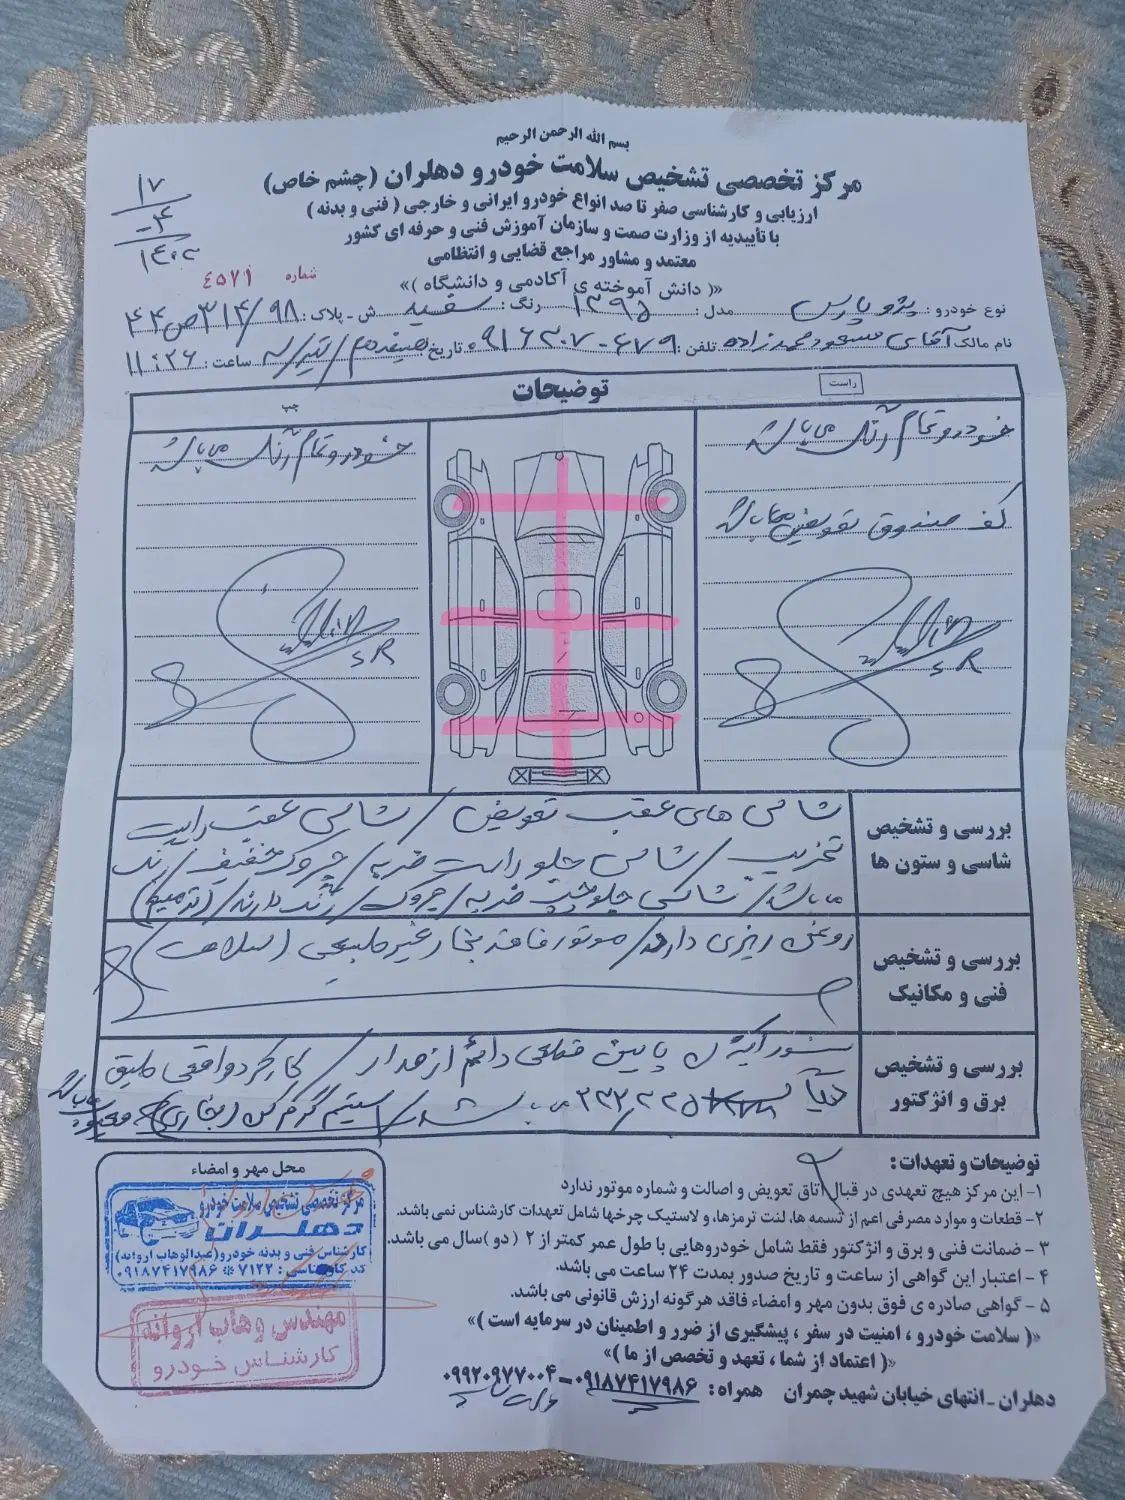 بسم الله الرحمن الرحیم
مرکز تخصصی تشخیص سلامت خودرو دهلران (چشم خاص)
ارزیابی و کارشناسی صفر تا صد انواع خودرو ایرانی و خارجی ( فنی و بدنه )
با تأییدیه از وزارت صمت و سازمان آموزش فنی و حرفه ای کشور
معتمد و مشاور مراجع قضایی و انتظامی
«( دانش آموخته ی آکادمی و دانشگاه )»
۱۷
۴
۱۴۰۲
شماره ۴۵۷۱
نوع خودرو : پژو پارس مدل : ۱۳۹۵ رنگ : سفید ش - پلاک : ۹۸/ ۳۱۴ ص ۴۴
نام مالک آقای مسعود محمدزاده تلفن : ۰۹۱۶۳۰۷۰۶۷۹ تاریخ هفدهم / تیر / ساعت : ۱۱:۲۶
توضیحات
راست
چپ
خودرو تمام رنگ می باشد
کف صندوق تعویض می باشد
S R
خودرو تمام رنگ می باشد
S R
بررسی و تشخیص
شاسی و ستون ها
شاسی های عقب تعویض / شاسی عقب راست
تخریب / شاسی جلو راست ضربه / چروک خفیف / رنگ
می باشد / شاسی جلو چپ ضربه / چروک / رنگ دارند / (ترمیم)
بررسی و تشخیص
فنی و مکانیک
روغن ریزی دارد / موتور فاقد بخار غیر طبیعی (سلامت)
بررسی و تشخیص
برق و انژکتور
پایین قطعی دائم از مدار / کارکرد واقعی طبق
دیاگ ۳۳۲/۲۲۵ شد / سیستم گرم کن (بخاری) معیوب می باشد
توضیحات و تعهدات :
۱- این مرکز هیچ تعهدی در قبال اتاق تعویض و اصالت و شماره موتور ندارد
۲- قطعات و موارد مصرفی اعم از تسمه ها، لنت ترمزها، و لاستیک چرخها شامل تعهدات کارشناس نمی باشد.
۳ - ضمانت فنی و برق و انژکتور فقط شامل خودروهایی با طول عمر کمتر از ۲ (دو) سال می باشد.
۴ - اعتبار این گواهی از ساعت و تاریخ صدور بمدت ۲۴ ساعت می باشد.
۵ - گواهی صادره ی فوق بدون مهر و امضاء فاقد هرگونه ارزش قانونی می باشد.
«( سلامت خودرو ، امنیت در سفر ، پیشگیری از ضرر و اطمینان در سرمایه است )»
«( اعتماد از شما ، تعهد و تخصص از ما )»
دهلران - انتهای خیابان شهید چمران همراه : ۰۹۱۸۷۴۱۷۹۸۶-۰۹۹۲۰۹۷۷۰۰۴
محل مهر و امضاء
مرکز تخصصی تشخیص سلامت خودرو
دهلران
کارشناس فنی و بدنه خودرو (عبدالوهاب اروانه)
کد کارشناسی : ۷۱۲۲ * ۰۹۱۸۷۴۱۷۹۸۶
مهندس وهاب اروانه
کارشناس خودرو